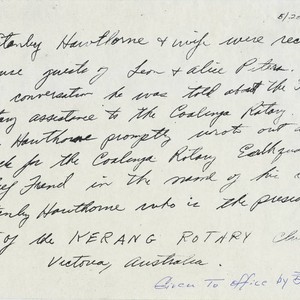 5/2
Stanley Hawthorne & wife were rec
guests of Leon & Alice Peters.
conversation he was told about the
assistance to the Coalinga Rotary
Hawthorne promptly wrote out
for the Coalinga Rotary Earthqua
Fund in the name of his
Stanley Hawthorne who is the presi
of the KERANG ROTARY Clu
Victoria, Australia.
Given To office by